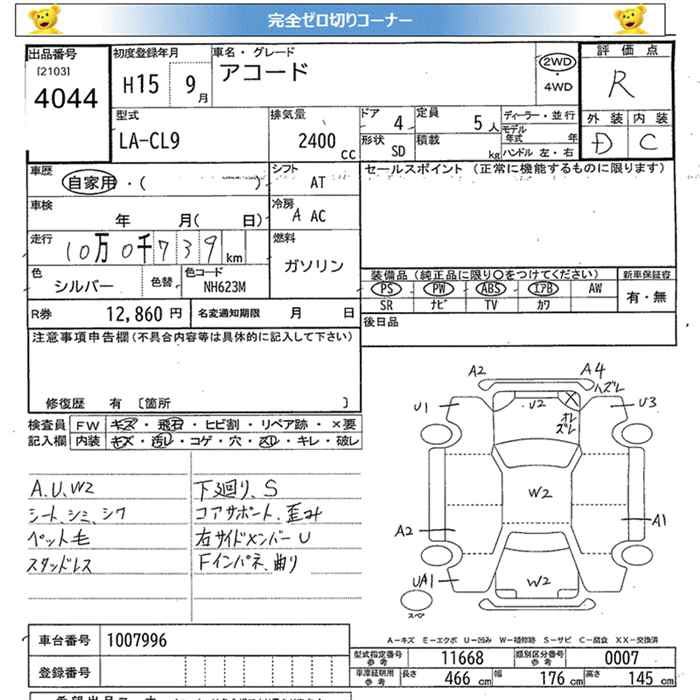 完全ゼロ切りコーナー
出品番号 初度登録年月 車名・グレード 評価点
[2103] 4044
H15 9月 アコード 2WD・4WD R
型式 排気量 ドア 4 定員 5人 ディーラー・並行 外装 内装
LA-CL9 2400cc 形状 SD 積載 kg モデル年式 年 D C
ハンドル 左・右
車歴 自家用・( ) シフト AT セールスポイント (正常に機能するものに限ります)
車検 年 月( 日) 冷房 A AC
走行 10万0千739km 燃料 ガソリン
色 シルバー 色替 色コード NH623M
装備品(純正品に限り○をつけてください) 新車保証書
PS PW ABS エアB AW 有・無
SR ナビ TV カワ
R券 12,860円 名変通知期限 月 日 後日品
注意事項申告欄(不具合内容等は具体的に記入して下さい)
修復歴 有 [箇所 ]
検査員 FW キズ・飛石・ヒビ割・リペア跡・×要
記入欄 内装 キズ・汚レ・コゲ・穴・スレ・キレ・破レ
A.U.W2
シート、シミ、シワ
ペット毛
スタッドレス
下廻り、S
コアサポート、歪み
右サイドメンバーU
Fインパネ、曲り
A2 A4 ハズレ
U1 U2 X U3
オレ
ズレ
W2
A2 A1
UA1 W2
スペア
A-キズ E-エクボ U-凹み W-補修跡 S-サビ C-腐食 XX-交換済
車台番号 1007996
登録番号
型式指定番号 参考 11668 類別区分番号 参考 0007
車庫証明用 参考 長さ 466cm 幅 176cm 高さ 145cm